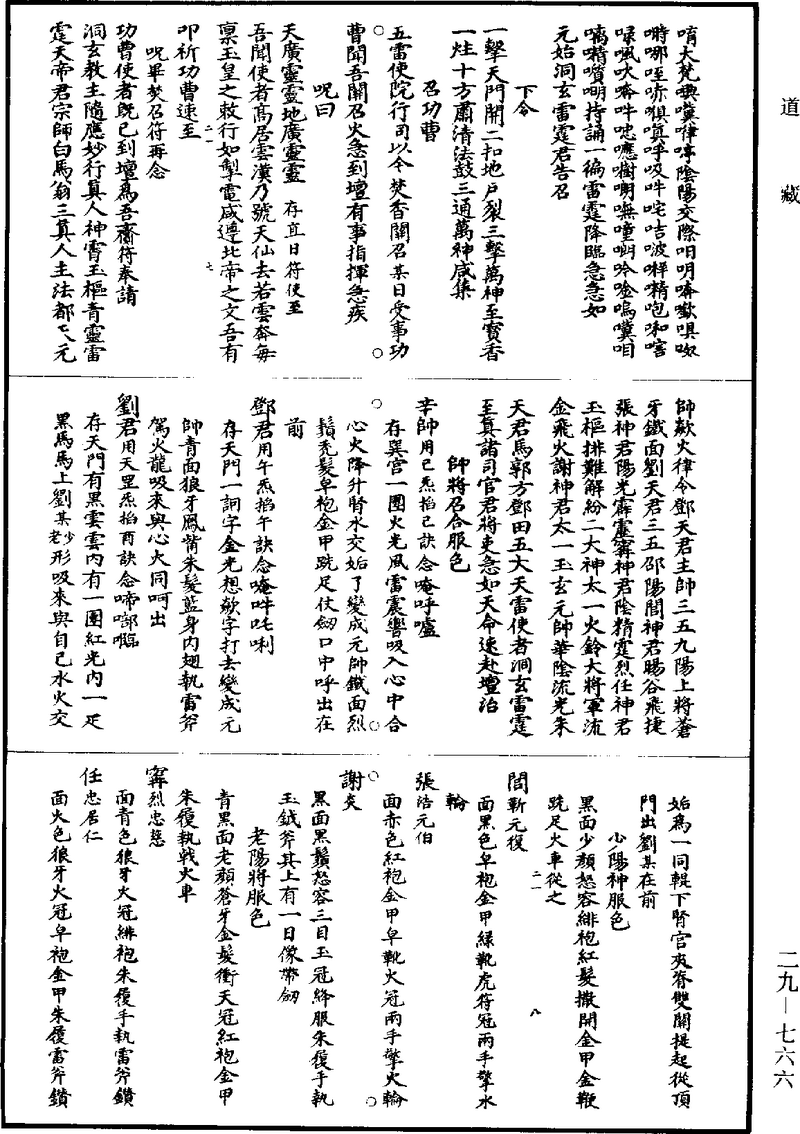 道藏
唷大梵𠹀嚝㗚哼陰陽交際呬明嚌歡唄呶
唽哪咥哧䫋嗔呼吸吽咤咭波㗒精咆和㗇
嘿嘔吹嗋吽𠹀噟樹明嘸噇嘝呤唫嗚嚝咱
嚆㗱嚽明持誦一徧雷霆降臨急急如
元始洞玄雷霆君告召
下令
一擊天門開二扣地戶裂三擊萬神至寳香
一炷十方肅清法鼓三通萬神咸集
召功曹
五雷使院行司以今焚香關召某日受事功
曹聞吾關召火急到壇有事指揮急疾
呪曰
天廣靈靈地廣靈靈 存直日符使至
吾聞使者高居雲漢乃號天仙去若雲奔每
禀玉皇之敕行如掣電咸遵北帝之文吾有
叩祈功曹速至
二一 七
呪畢焚召符再念
功曹使者既已到壇爲吾齎符奉請
洞玄教主隨應妙行真人神霄玉樞青靈雷
霆天帝君宗師白馬翁三真人主法都天元
師歘火律令鄧天君主帥三五九陽上將蒼
牙鐵面劉天君三五邵陽閻神君暘谷飛捷
張神君陽光霹靂寗神君陰精霆烈任神君
玉樞排難解紛二大神太一火鈴大將軍流
金飛火謝神君太一玉玄元帥華陰流光朱
天君馬郭方鄧田五大天雷使者洞玄雷霆
至真諸司官君將吏急如天命速赴壇治
帥將召合服色
辛帥用巳炁掐巳訣念唵呼嚧
存巽宫一團火光風雷震響吸入心中合
心火降升腎水交姤了變成元帥鐵面烈
鬚禿髮皁袍金甲跣足仗劒口中呼出在
前
鄧君用午炁掐午訣念唵吽吒唎
存天門一訶字金光想歘字打去變成元
帥青面狼牙鳳觜朱髮藍身肉翅執雷斧
駕火龍吸來與心火同呵出
劉君用天罡炁掐酉訣念啼㗅嚂
存天門有黑雲雲内有一團紅光内一疋
黑馬馬上劉某老少形吸來與自己水火交
姤爲一同輥下腎宫夾脊雙關提起從頂
門出劉某在前
少陽神服色
黑面少顔怒容緋袍紅髮撒開金甲金鞭
跣足火車從之
二一 八
閻靳元復
面黑色皁袍金甲緑靴虎符冠兩手擎水
輪
張浩元伯
面赤色紅袍金甲皁靴火冠兩手擎火輪
謝炎
黑面黑鬚怒容三目玉冠絳服朱履手執
玉鉞斧其上有一日像帶劒
老陽將服色
青黑面老顔蒼牙金髮衝天冠紅袍金甲
朱履執戟火車
寗烈忠慈
面青色狼牙火冠緋袍朱履手執雷斧鑽
任忠居仁
面火色狼牙火冠皁袍金甲朱履雷斧鑽
二九—七六六